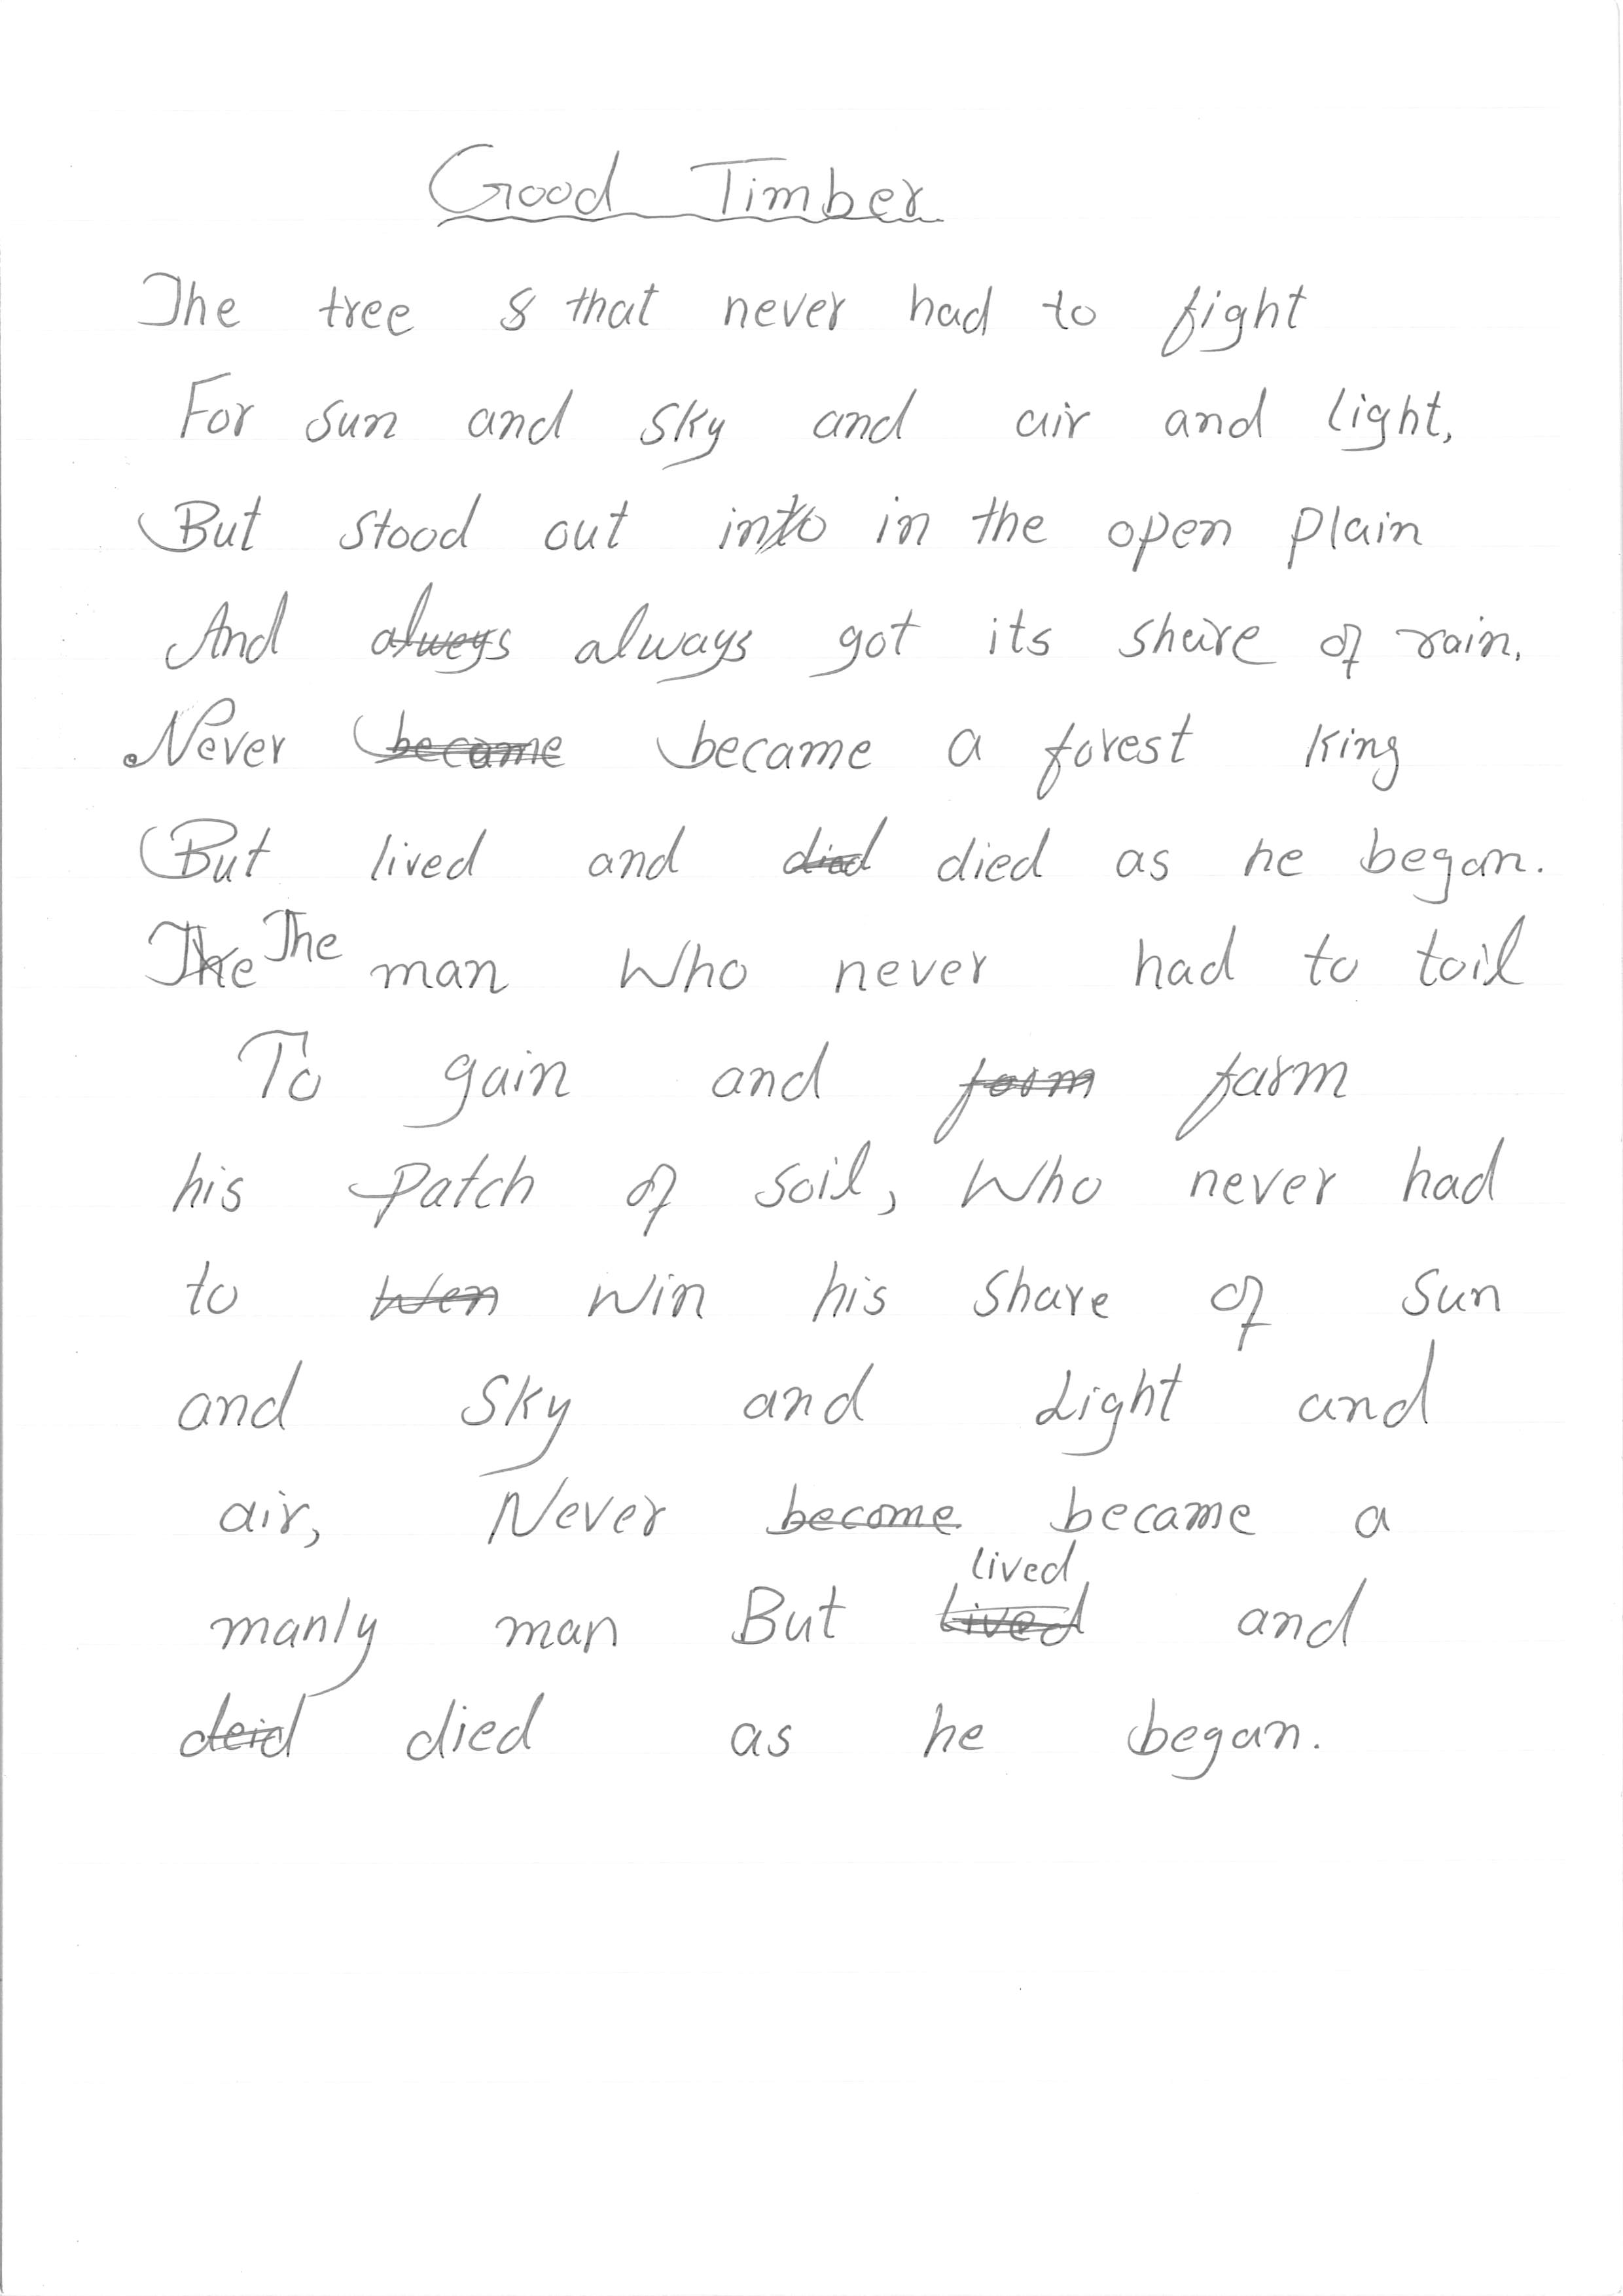 Good Timber
The tree & that never had to fight
For sun and sky and air and light,
But stood out into in the open plain
And alweys always got its share of rain,
Never became became a forest king
But lived and did died as he began.
The The man Who never had to toil
To gain and form farm
his patch of soil, Who never had
to Wen Win his share of sun
and sky and Light and
air, Never become became a
lived
manly man But lived and
deid died as he began.